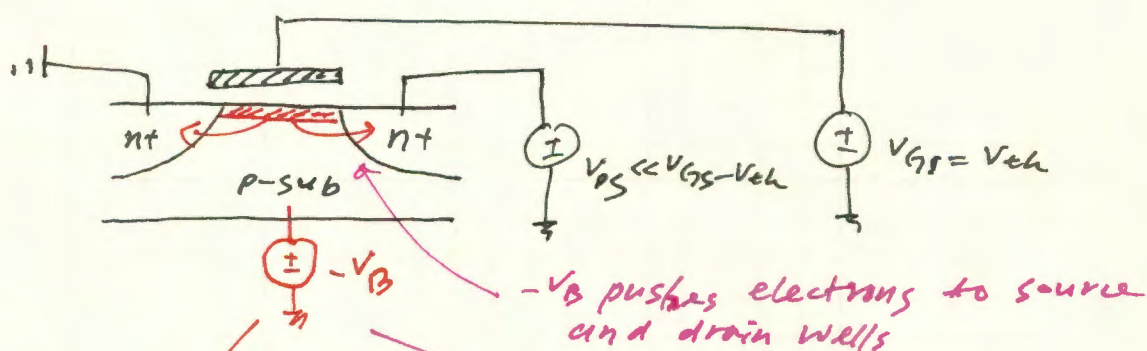 n+
n+
p-sub
± V_DS << V_GS - V_th
± V_GS = V_th
± -V_B
-V_B pushes electrons to source
and drain wells